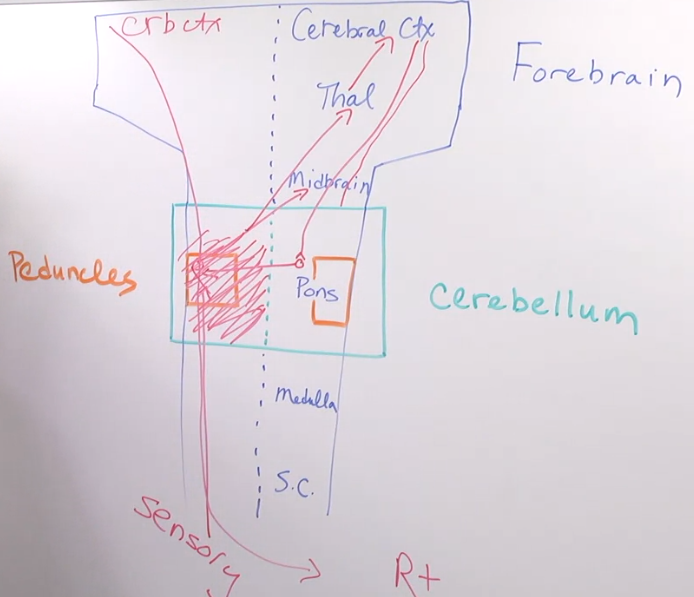 crbctx
Cerebral Ctx
Forebrain
Thal
Midbrain
Peduncles
Pons
Cerebellum
Medulla
S.C.
Sensory
R+